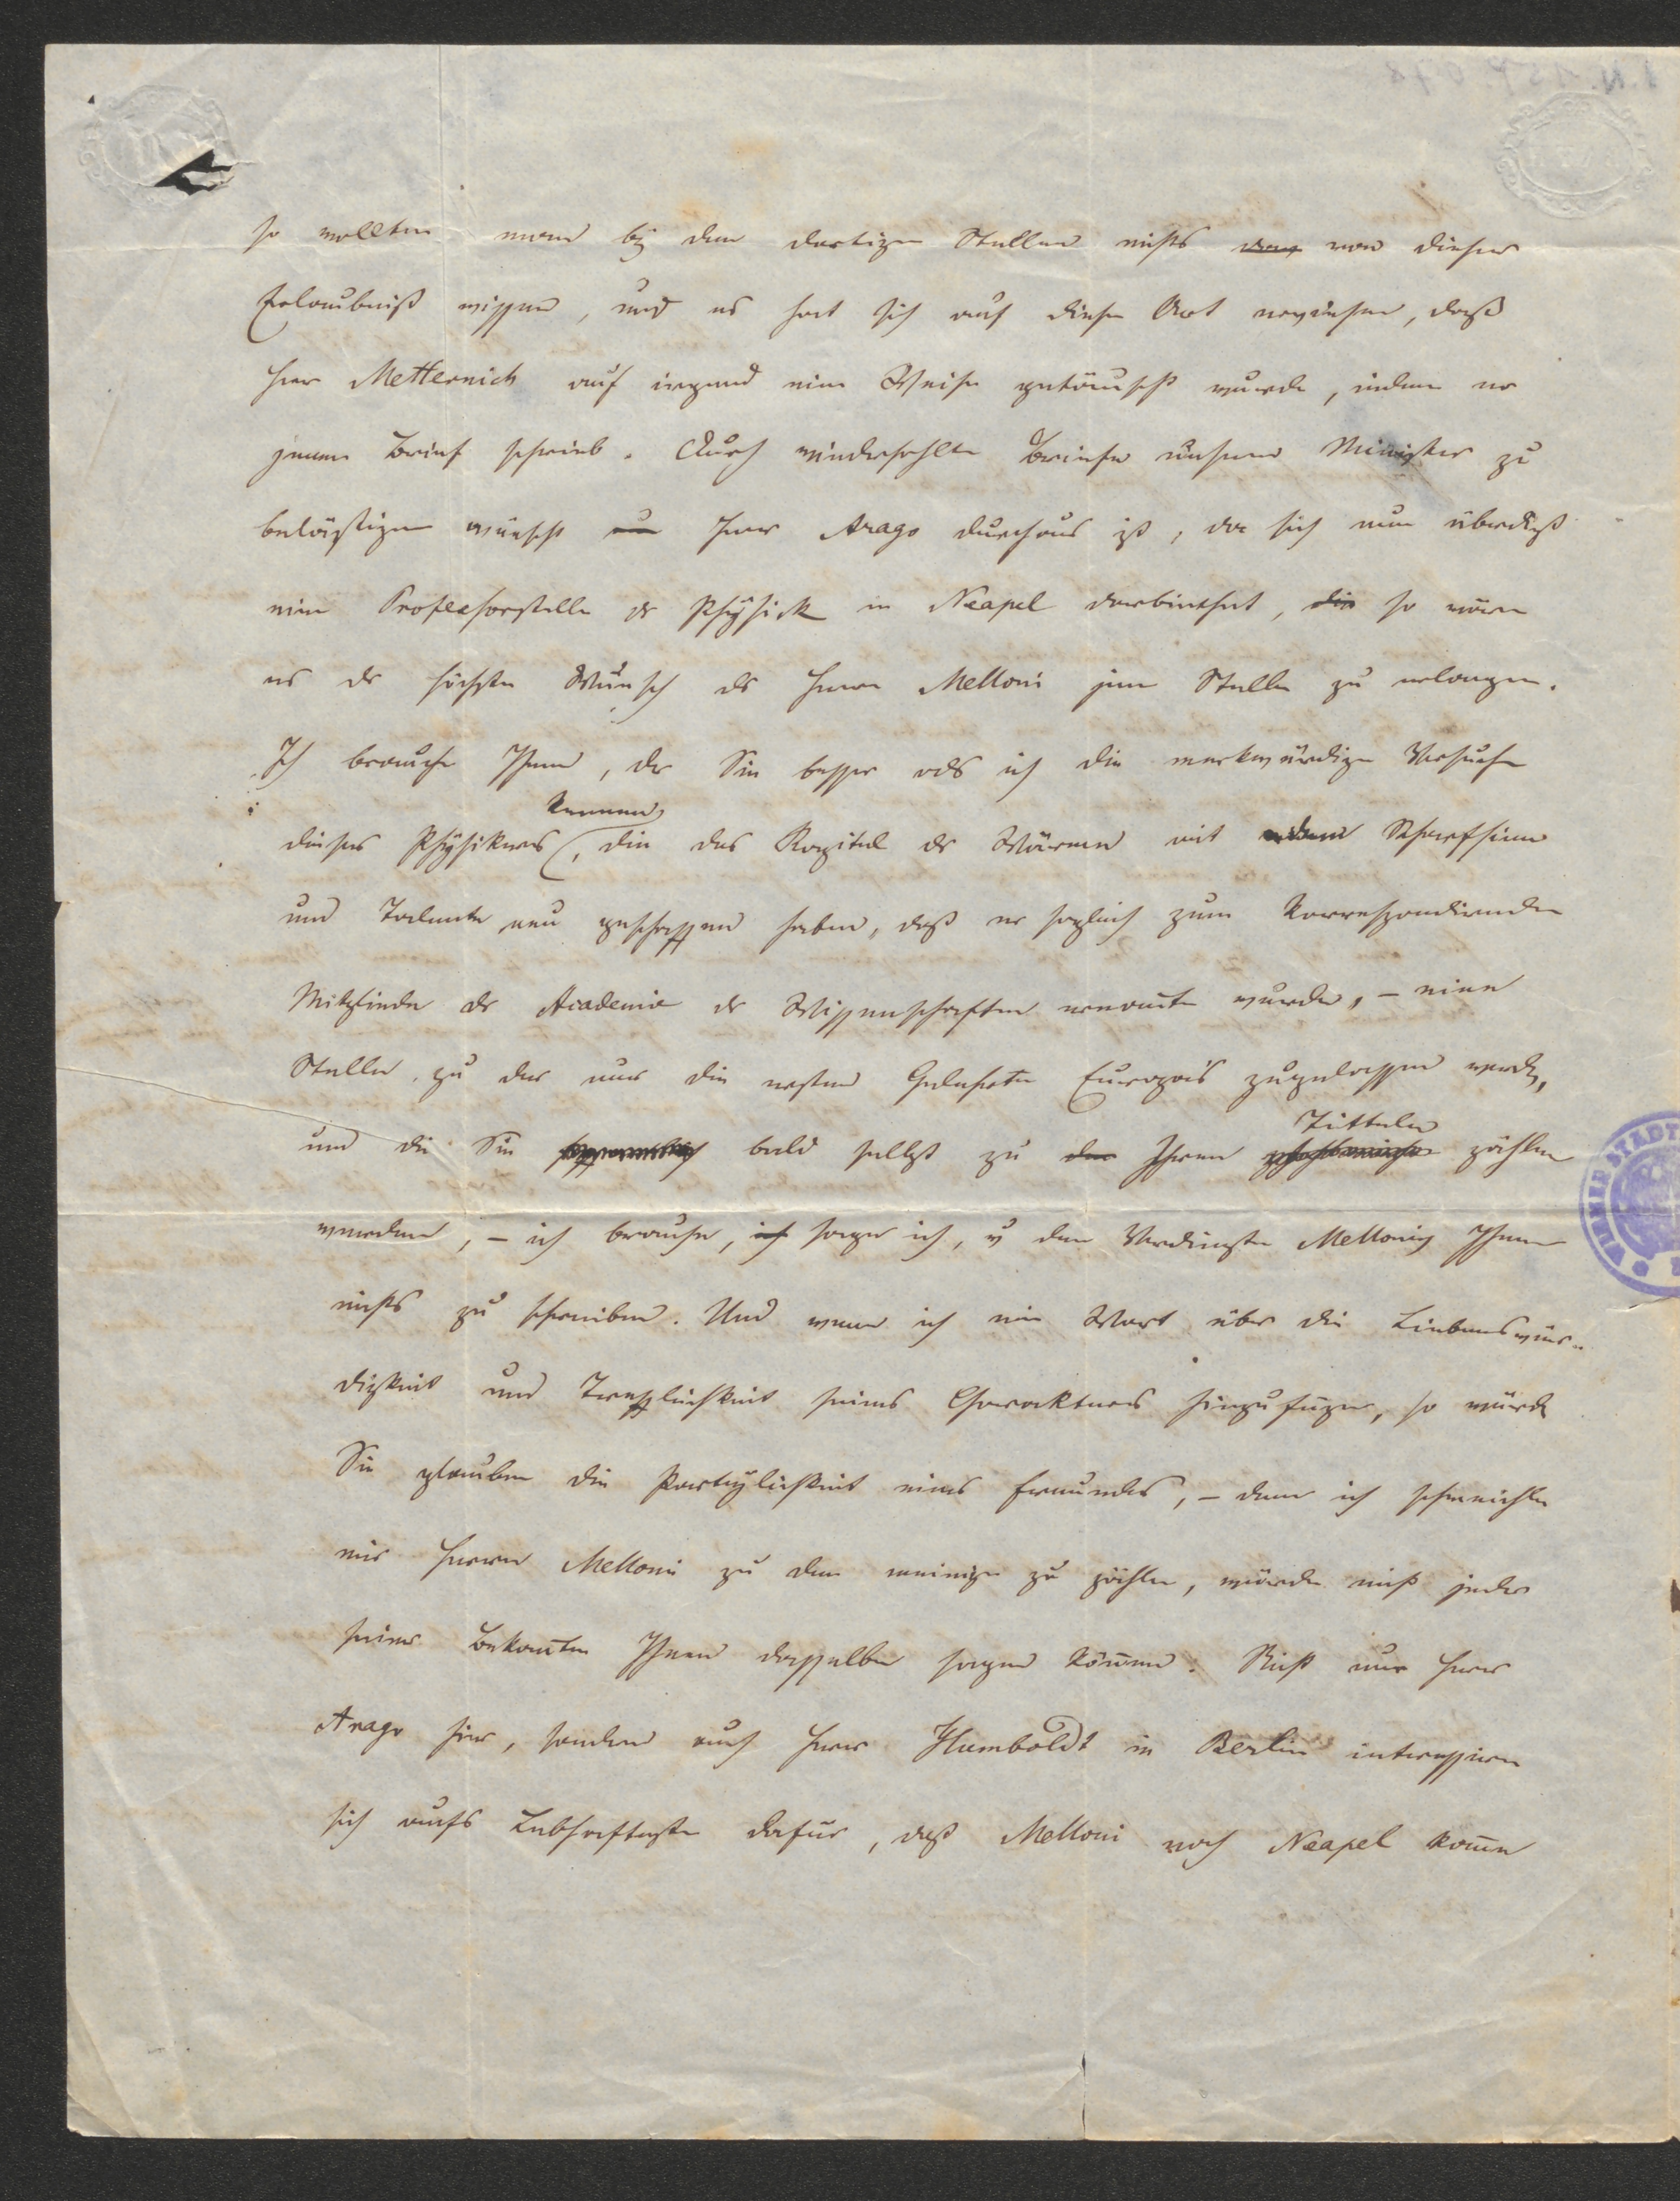 so wollten man bÿ den dortigen Stellen nichts von dieser
Erlaubniß wissen, und es hat sich auf diese Art erwiesen, daß
Herr Metternich auf irgend eine Weise getäuscht wurde, indem er
jenen Brief schrieb. Durch wiederhohlte Briefe unseren Minister zu
belästigen wünscht Herr Arago durchaus , da sich nun überdieß
eine Professorstelle der Physick in Neapel darbiethet, die so wäre
es der höchste Wunsch des Herrn Melloni jene Stelle zu erlangen.
Ich brauche Ihnen, der Sie besser als ich die merkwürdigen Versuche
kennen
dieses Physikers, die das Kapitel der Wärme mit Scharfsinn
und Talente neu geschaffen haben, daß er sogleich zum korrespondirenden
Mitgliede der Academie der Wissenschaften ernañt wurde, – eine
Stelle, zu der nur die ersten Gelehrten Europa's zugelassen werden,
Titteln
und die Sie bald selbst zu den Ihren zählen
werden, – ich brauche, ich sage ich, v den Verdiensten Mellonis Ihnen
nichts zu schreiben. Und wenn ich ein Wort über die Liebenswür-
digkeit und Trefflichkeit seines Charakters hinzufüge, so würden
Sie glauben die Partheylichkeit eines Freundes, – denn ich schmeichle
mir Herrn Melloni zu den meinigen zu zählen, würde nicht jeder
seiner Bekañten Ihnen dasselbe sagen köñen. Nicht nur Herr
Arago hier, sondern auch Herr Humboldt in Berlin interessiren
sich aufs Lebhafteste dafür, daß Melloni nach Neapel kom̃e